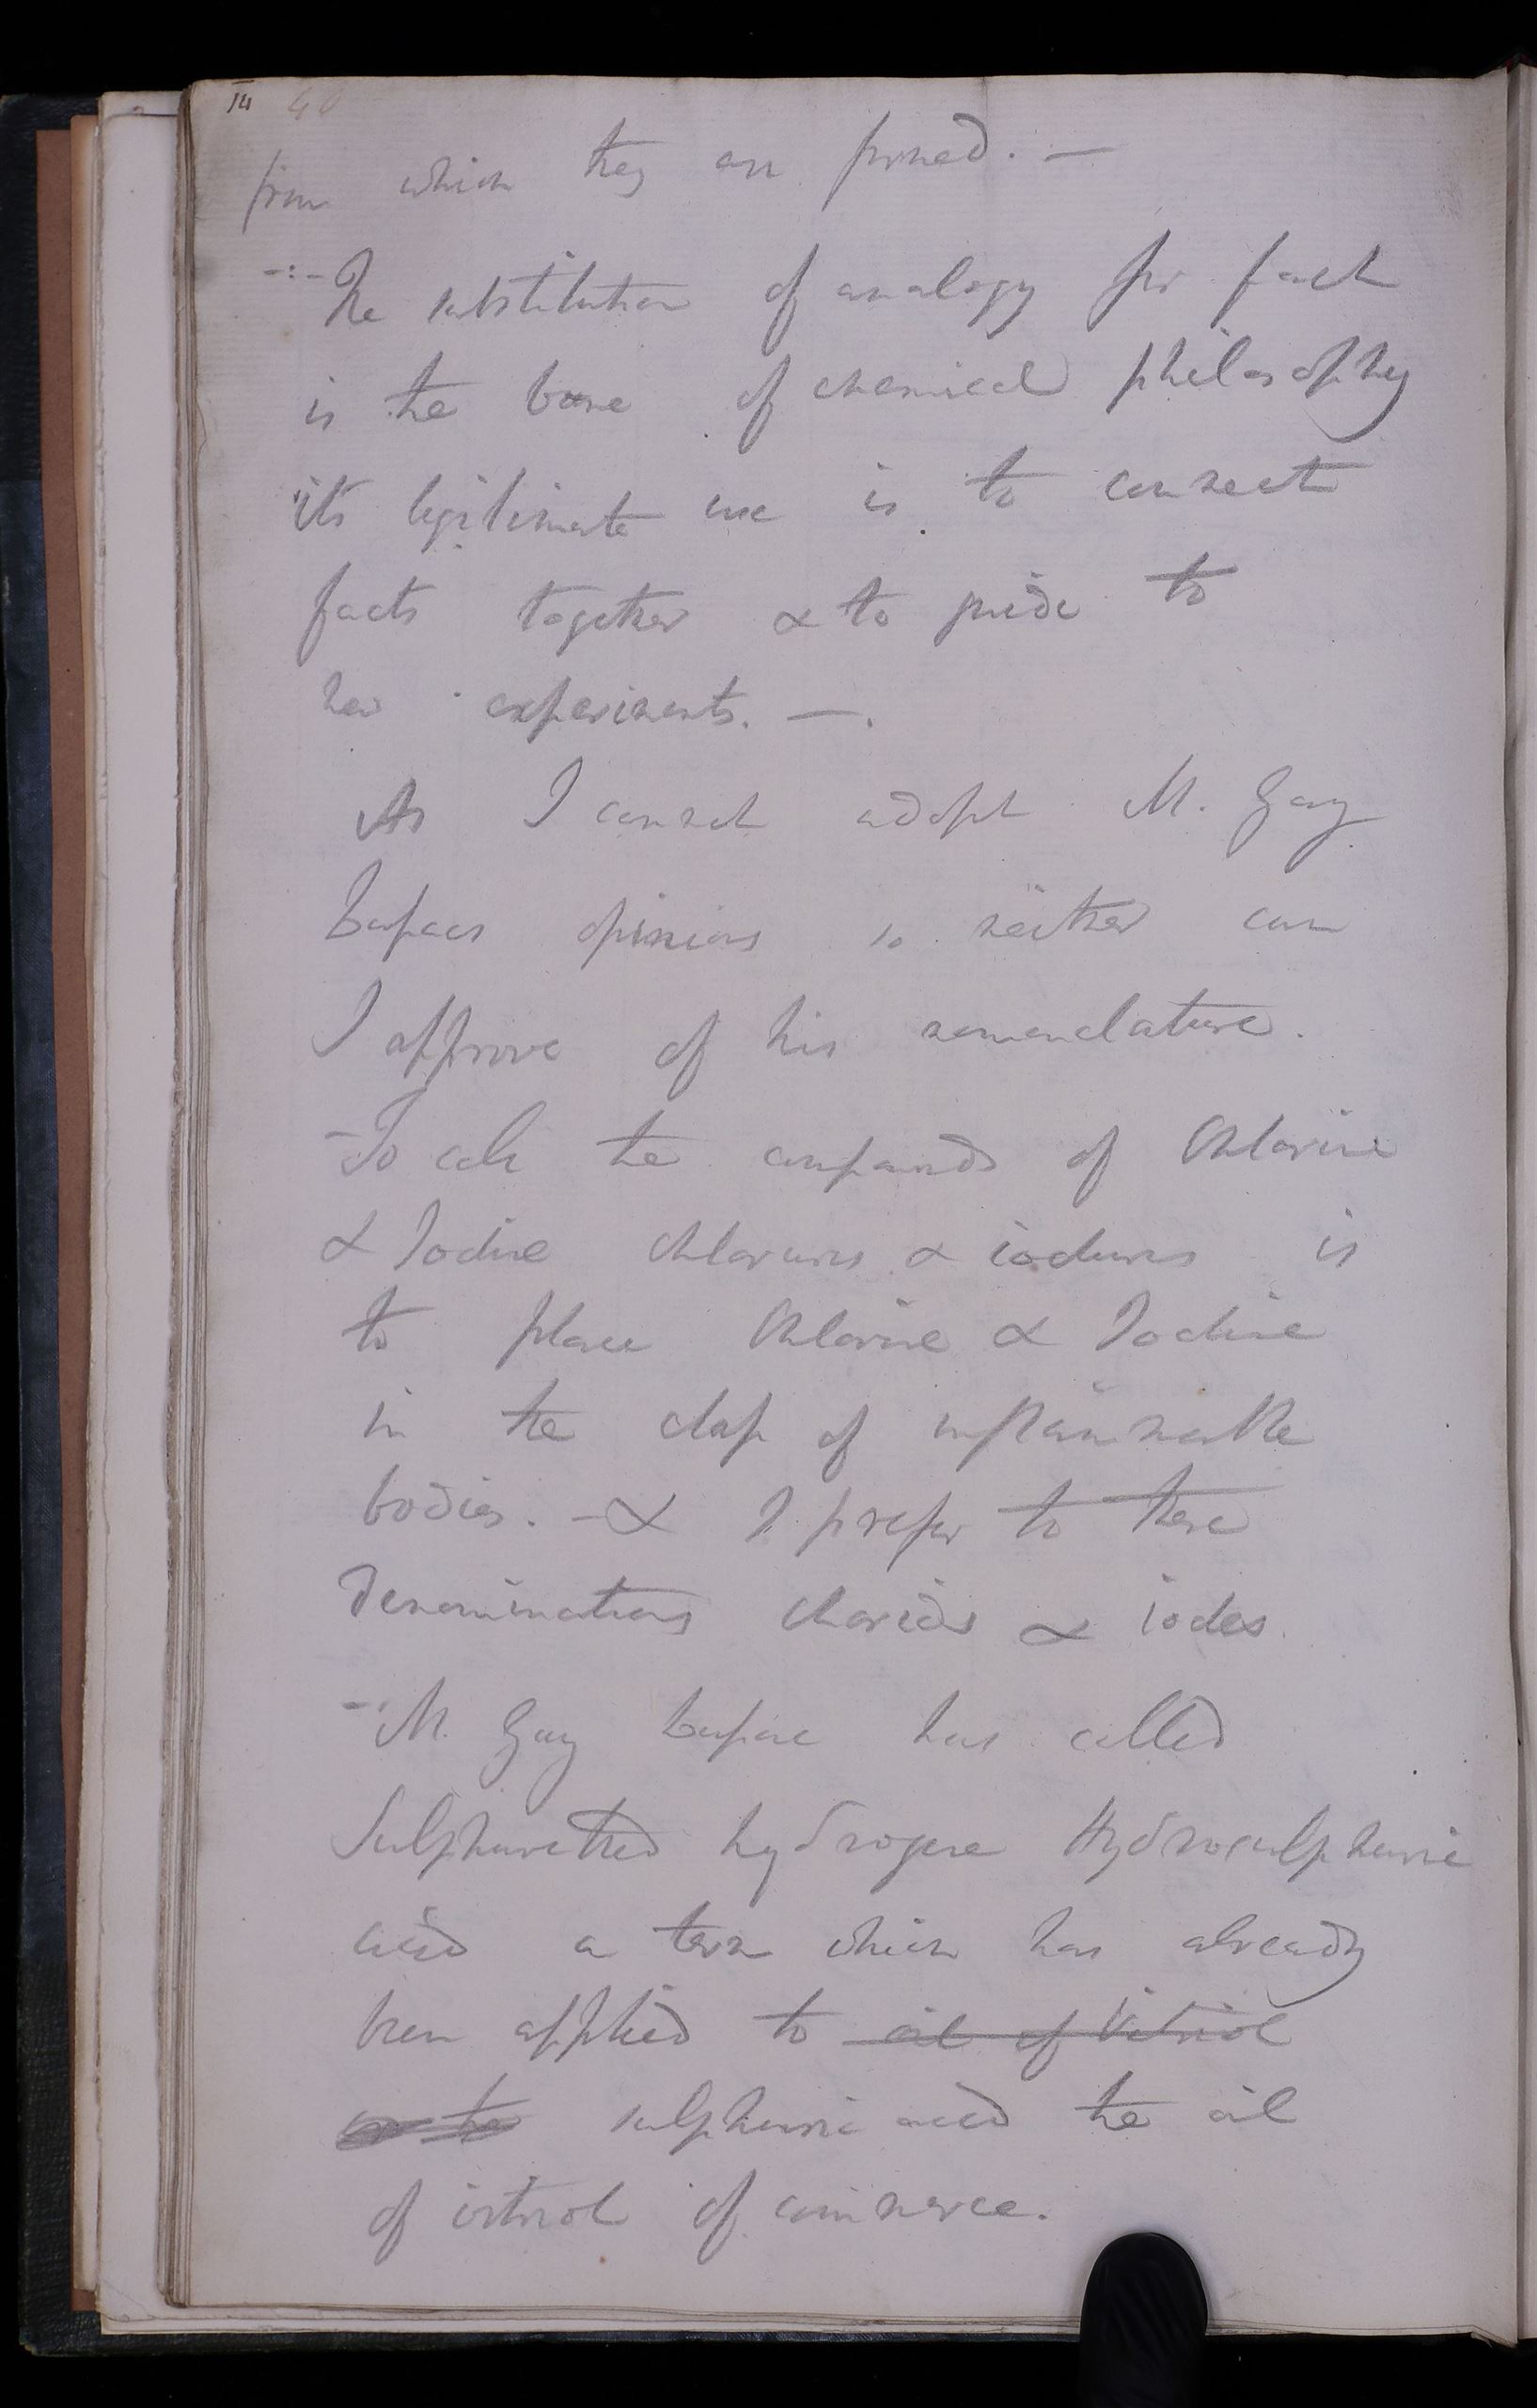 14 40
from which they are formed. —
-:- The substitution of analogy for fact
is the bane of chemical philosophy
its legitimate use is to connect
facts together & to guide to
new experiments. —.
As I cannot adopt M. Gay
Lussacs opinions so neither can
I approve of his nomenclature.
– To call the compounds of Chlorine
& Iodine chlorures & iodures is
to place Chlorine & Iodine
in the class of inflammable
bodies. – & I prefer to these
denominations chorids & iodes.
– M. Gay Lussac has called
Sulphuretted hydrogene Hydrosulphuric
acid a term which has already
been applied to oil of Vitriol
or the sulphuric acid the oil
of vitriol of commerce.